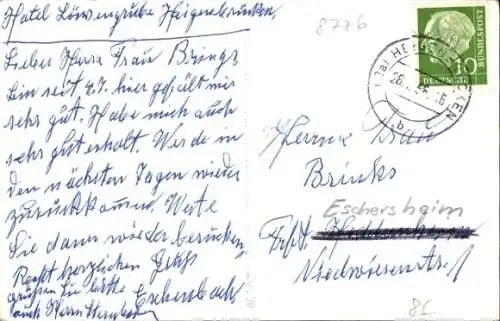 Hotel Löwengrube Heigenbrücken,
Lieber Herr Frau Brings,
Bin seit 23. hier gefällt mir
sehr gut. Habe mich auch
sehr gut erholt. Werde in
den nächsten Tagen wieder
zurückkommen. Werte
Sie dann wieder besuchen,
Recht herzlichen Gruß
grüßen Sie bitte
auch Herrn
8776
DEUTSCHE
BUNDESPOST
10
b
Herrn Frau
Brinks
Eschersheim
Frkft.
Niedwiesenstr.